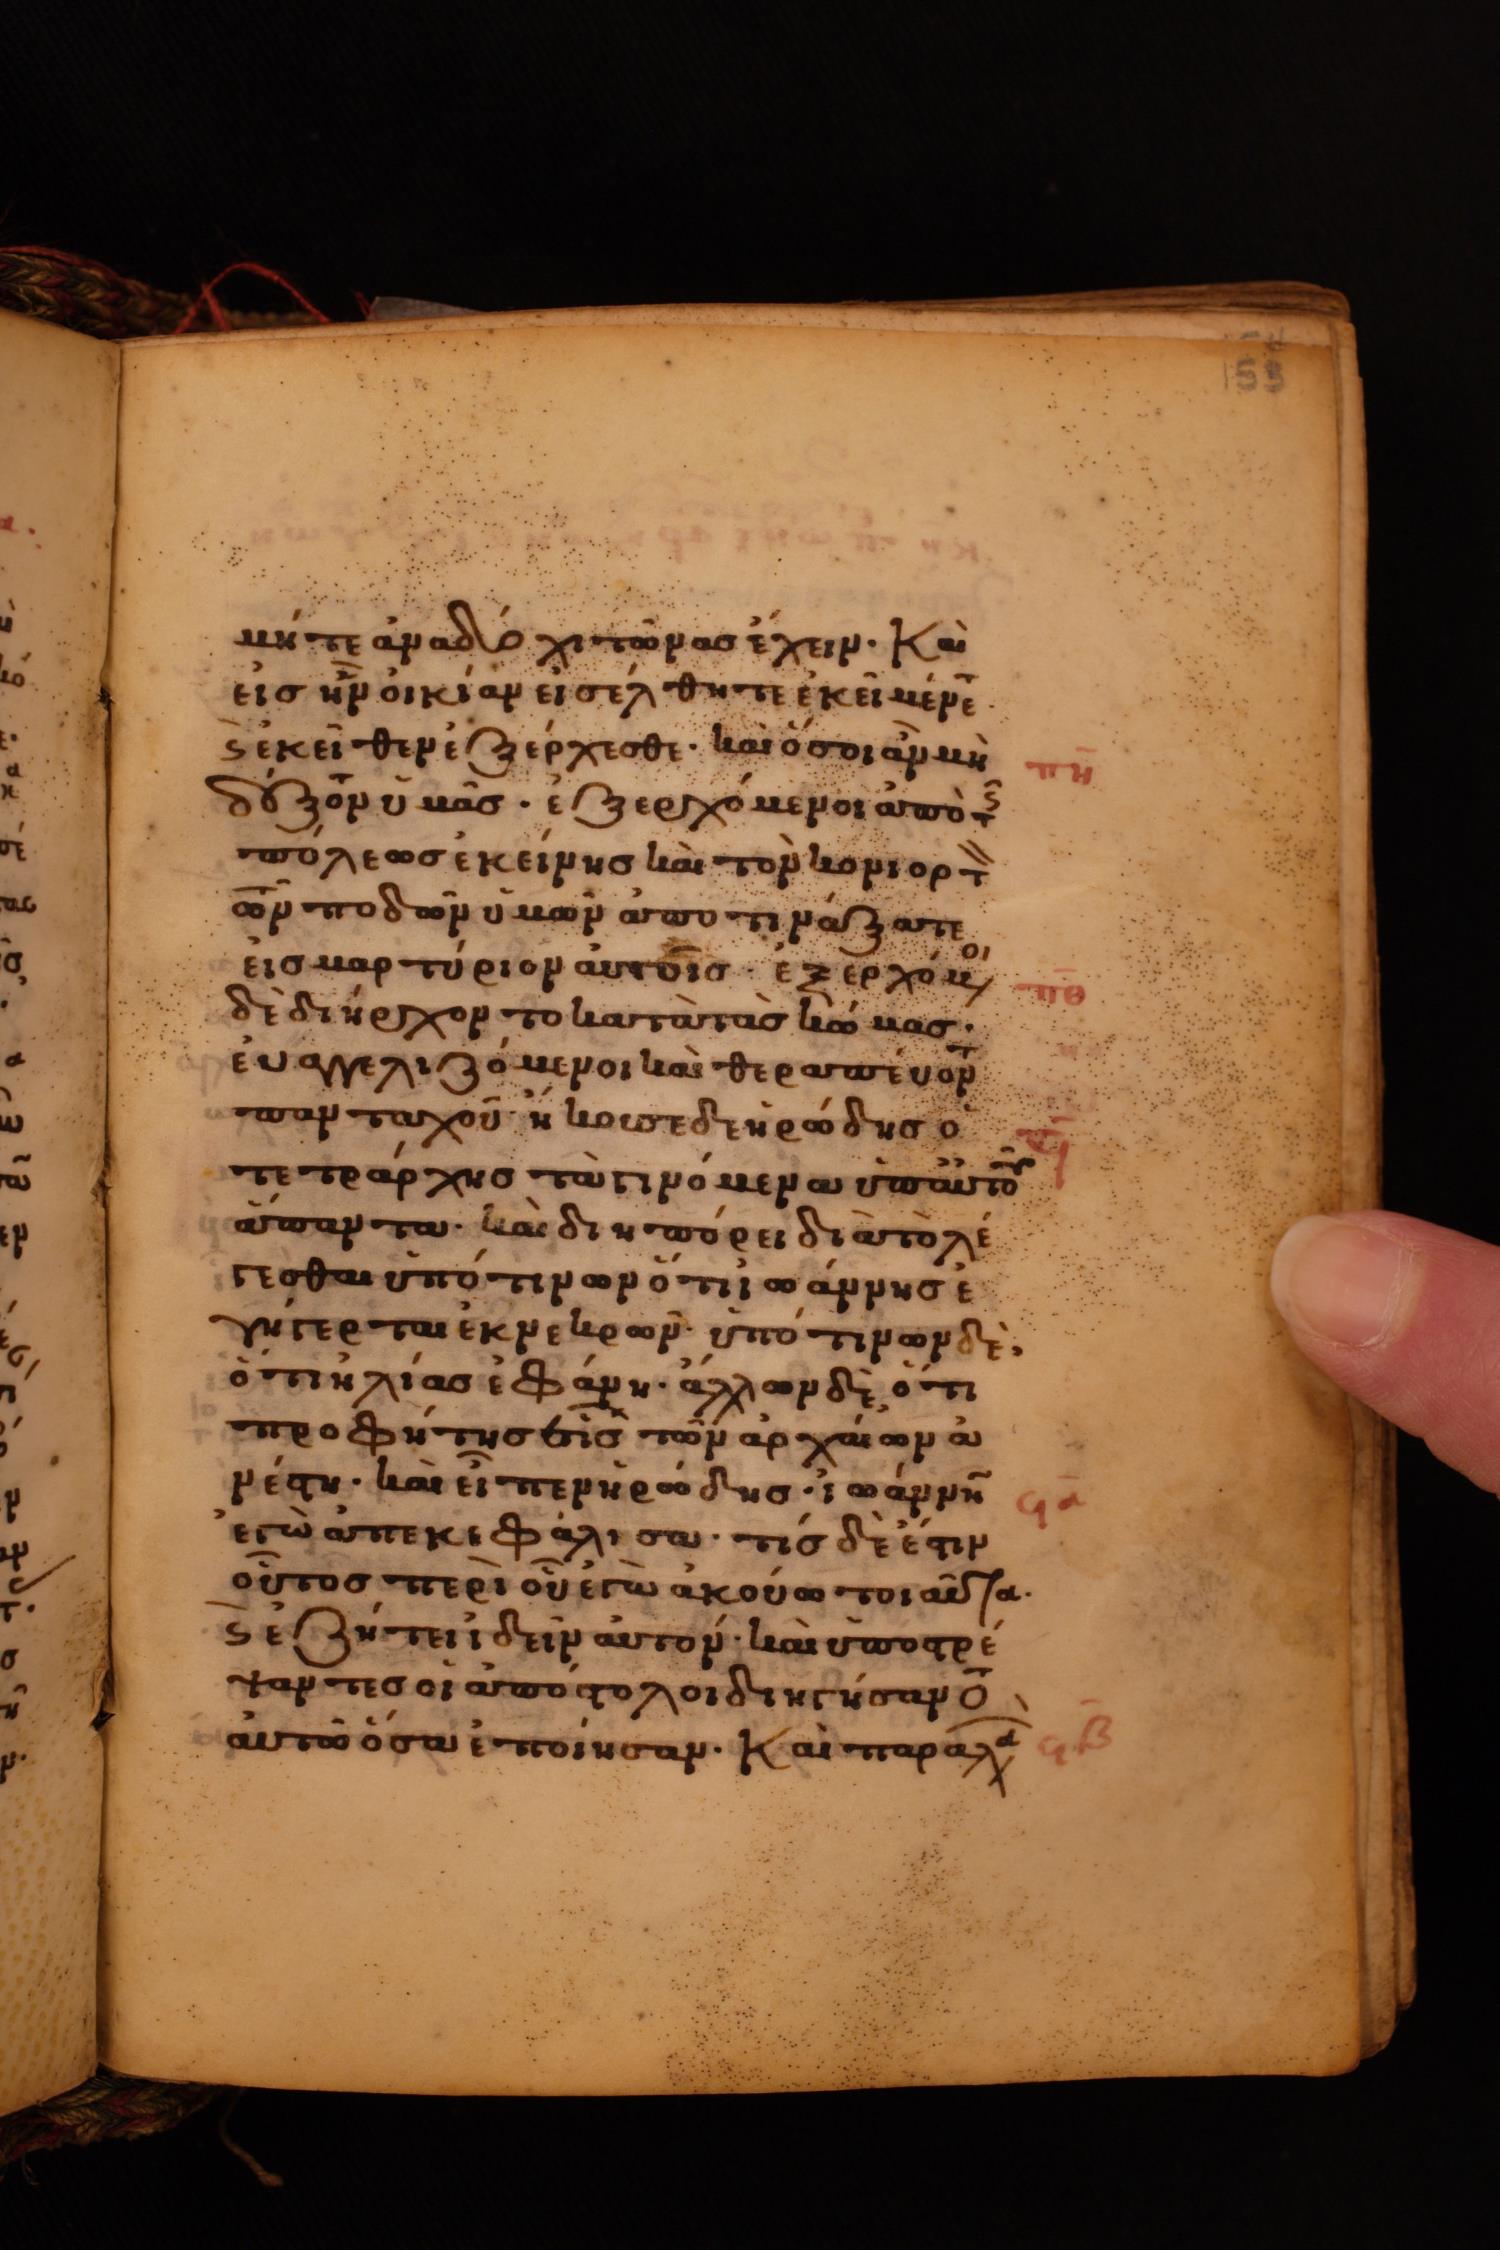 μήτε ἀνὰ δύο χιτῶνας ἔχειν· Καὶ
εἰς ἣν οἰκίαν εἰσέλθητε ἐκεῖ μένετε·
ϗ ἐκεῖθεν ἐξέρχεσθε· καὶ ὅσοι ἂν μὴ
δέξονται ὑμᾶς· ἐξερχόμενοι ἀπὸ τῆς
πη
πόλεως ἐκείνης καὶ τὸν κονιορτὸν
τῶν ποδῶν ὑμῶν ἀποτινάξατε
εἰς μαρτύριον αὐτοῖς· ἐξερχόμενοι
πθ
δὲ διήρχοντο κατὰ τὰς κώμας·
εὐαγγελιζόμενοι καὶ θεραπεύοντ
πανταχοῦ· ἤκουσε δὲ ἡρώδης ὁ
ϟ
τετράρχης τὰ γινόμενα ὑπ' αὐτοῦ
ἅπαντα· καὶ διηπόρει διὰ τὸ λέ
γεσθαι ὑπό τινων ὅτι ἰωάννης ἐ
γήγερται ἐκ νεκρῶν· ὑπό τινων δὲ,
ὅτι ἠλίας ἐφάνη· ἄλλων δὲ ὅτι
προφήτης εἷς τῶν ἀρχαίων ἀ
νέστη· καὶ εἶπεν ἡρώδης· ἰωάννην
ϟα
ἐγὼ ἀπεκεφάλισα· τίς δὲ ἐστιν
οὗτος περὶ οὗ ἐγὼ ἀκούω τοιαῦτα·
ϗ ἐζήτει ἰδεῖν αὐτόν· καὶ ὑποστρέ
ψαντες οἱ ἀπόστολοι διηγήσαντο
αὐτῶ ὅσα ἐποίησαν· Καὶ παραλα
ϟβ